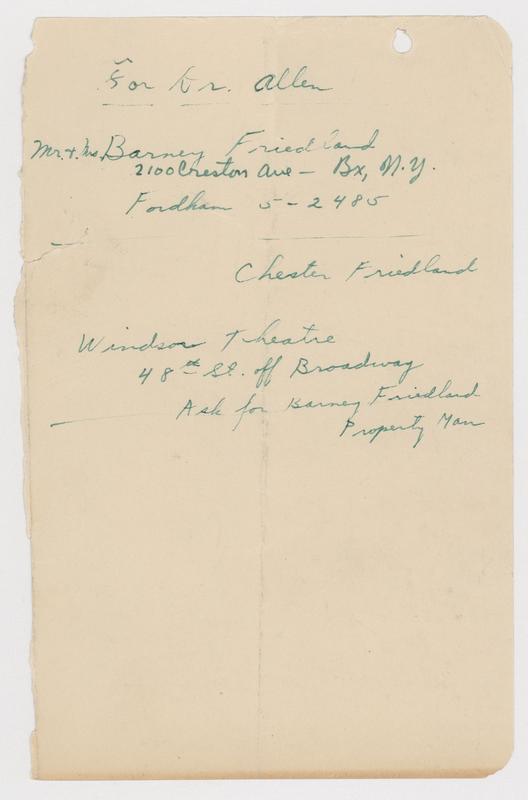 For Dr. Allen
Mr. & Mrs. Barney Friedland
2100 Creston Ave - Bx, N.Y.
Fordham 5-2485
Chester Friedland
Windsor Theatre
48th St. off Broadway
Ask for Barney Friedland
Property Man